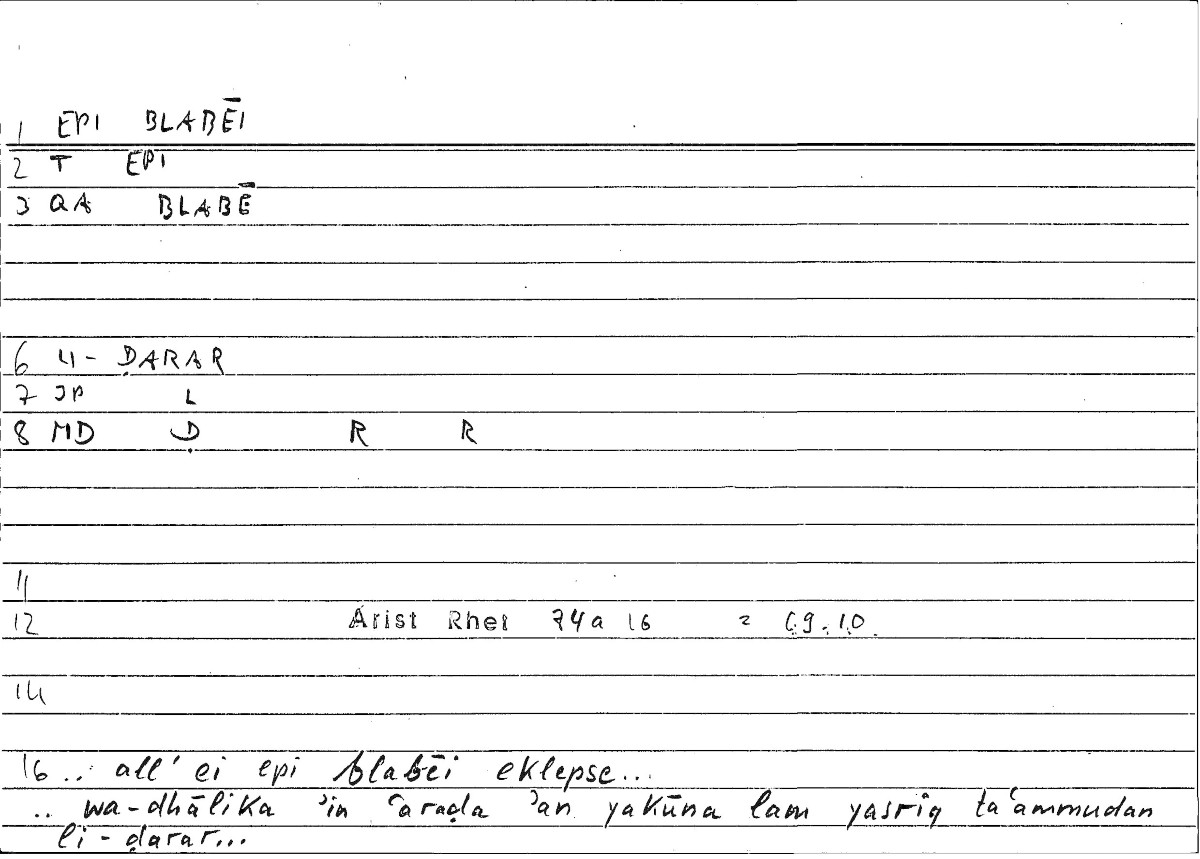 1 EPI BLABĒI
2 T EPI
3 QA BLABĒ
6 LI- ḌARAR
7 JP L
8 MD Ḍ R R
11
12 Arist Rhet 74a 16 = 69.10.
14
16 .. all' ei epi blabēi eklepse...
.. wa-dhālika ʾin ʿaraḍa ʾan yakūna lam yasriq taʿammudan
li-ḍarar...